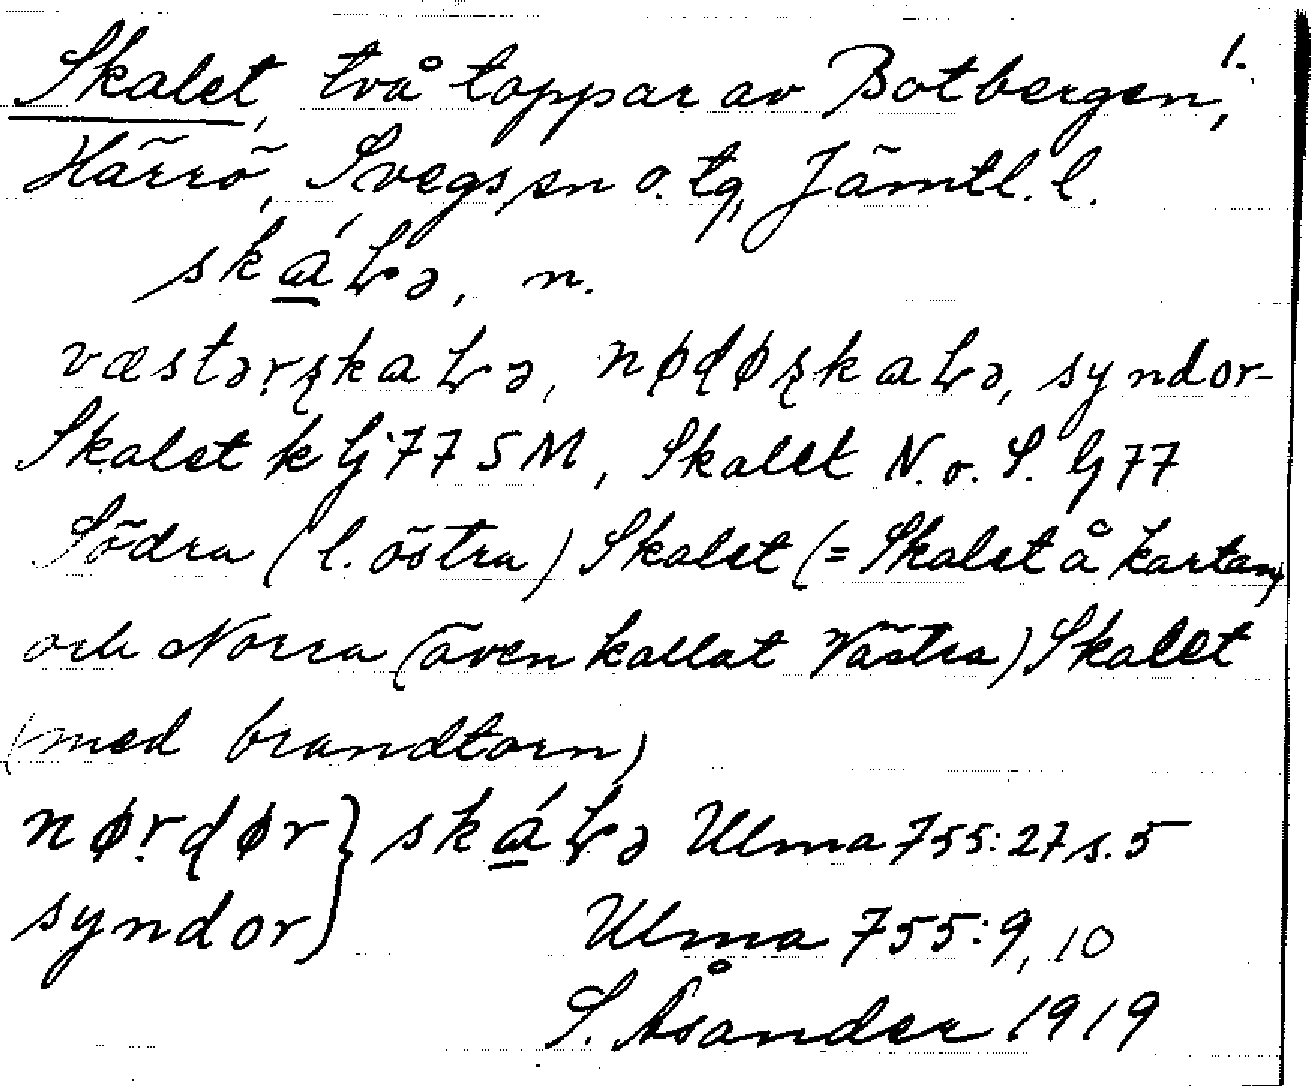 1.
Skalet, två toppar av Botbergen,
Härrö, Svegs sn o. tg, Jämtl. l.
skáɽə, n.
væstərʂkaɽə, nøɖøʂkaɽə, syndor-
Skalet k Gj 77 SM, Skalet N. o. S. Gj 77
Södra (l. östra) Skalet (= Skalet å kartan)
och Norra (även kallat Västra) Skalet
(med brandtorn)
nørɖør } skáɽə Ulma 755:27 s. 5
syndor } Ulma 755:9, 10
S. Åsander 1919